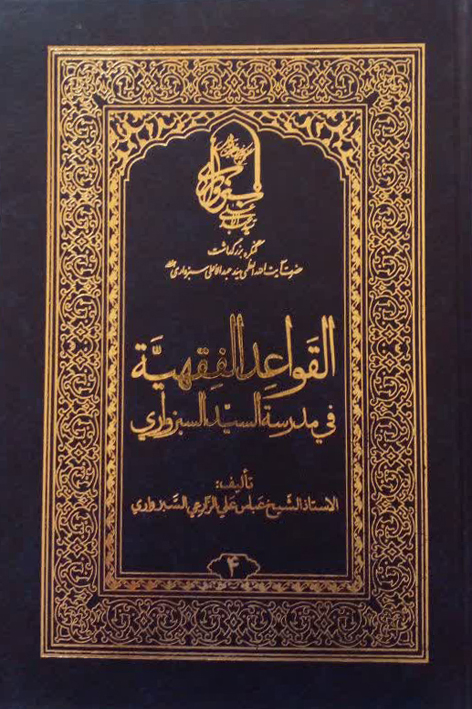 کنگره بزرگداشت
حضرت آیت الله العظمی سید عبدالاعلی سبزواری
القَواعِد الفِقهِيَّة
في مدرسة السيّد السبزواري
تأليف:
الاستاذ الشيخ عباس علي الزارعي السَّبزواري
۴